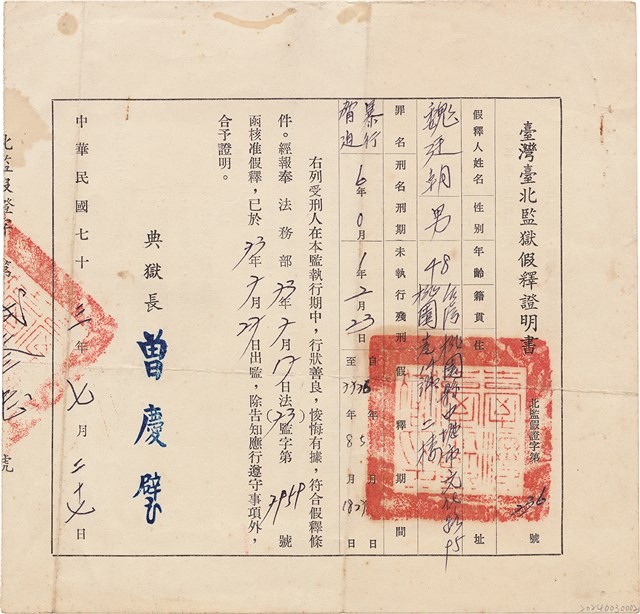 臺灣臺北監獄假釋證明書
北監假證字第 336 號
假釋人姓名 性別 年齡 籍貫 住址
魏廷朝 男 48 台灣 桃園
罪名 刑名刑期 未執行殘刑 假釋期間
暴行脅迫 6年0月 1年2月23日 自 年 月 日 至 年 月 日
右列受刑人在本監執行期中，行狀善良，悛悔有據，符合假釋條
件。經報奉 法務部73年7月17日法(73)監字第7959號
函核准假釋，已於73年7月27日出監，除告知應行遵守事項外，
合予證明。
典獄長 曾慶璧
中華民國七十三年七月二十七日
北監假證字第 號
20240030002